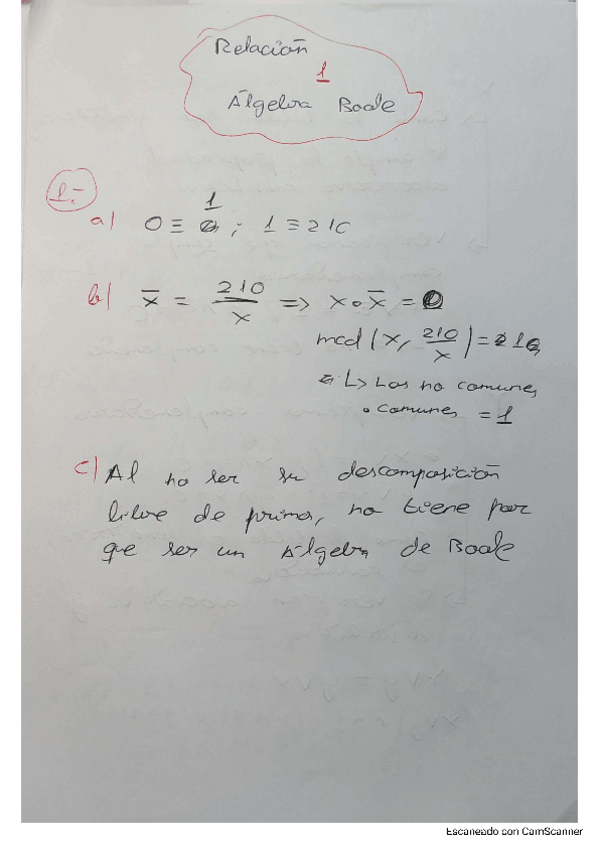 Relación
1
Álgebra Boole
1.-
a) 0 ≡ 1 ; 1 ≡ 210
b) x̄ = 210/x => x • x̄ = 0
mcd (x, 210/x) = 1
↳ Los no comunes
• comunes = 1
c) Al no ser su descomposición
libre de primos, no tiene por
que ser un Álgebra de Boole
Escaneado con CamScanner